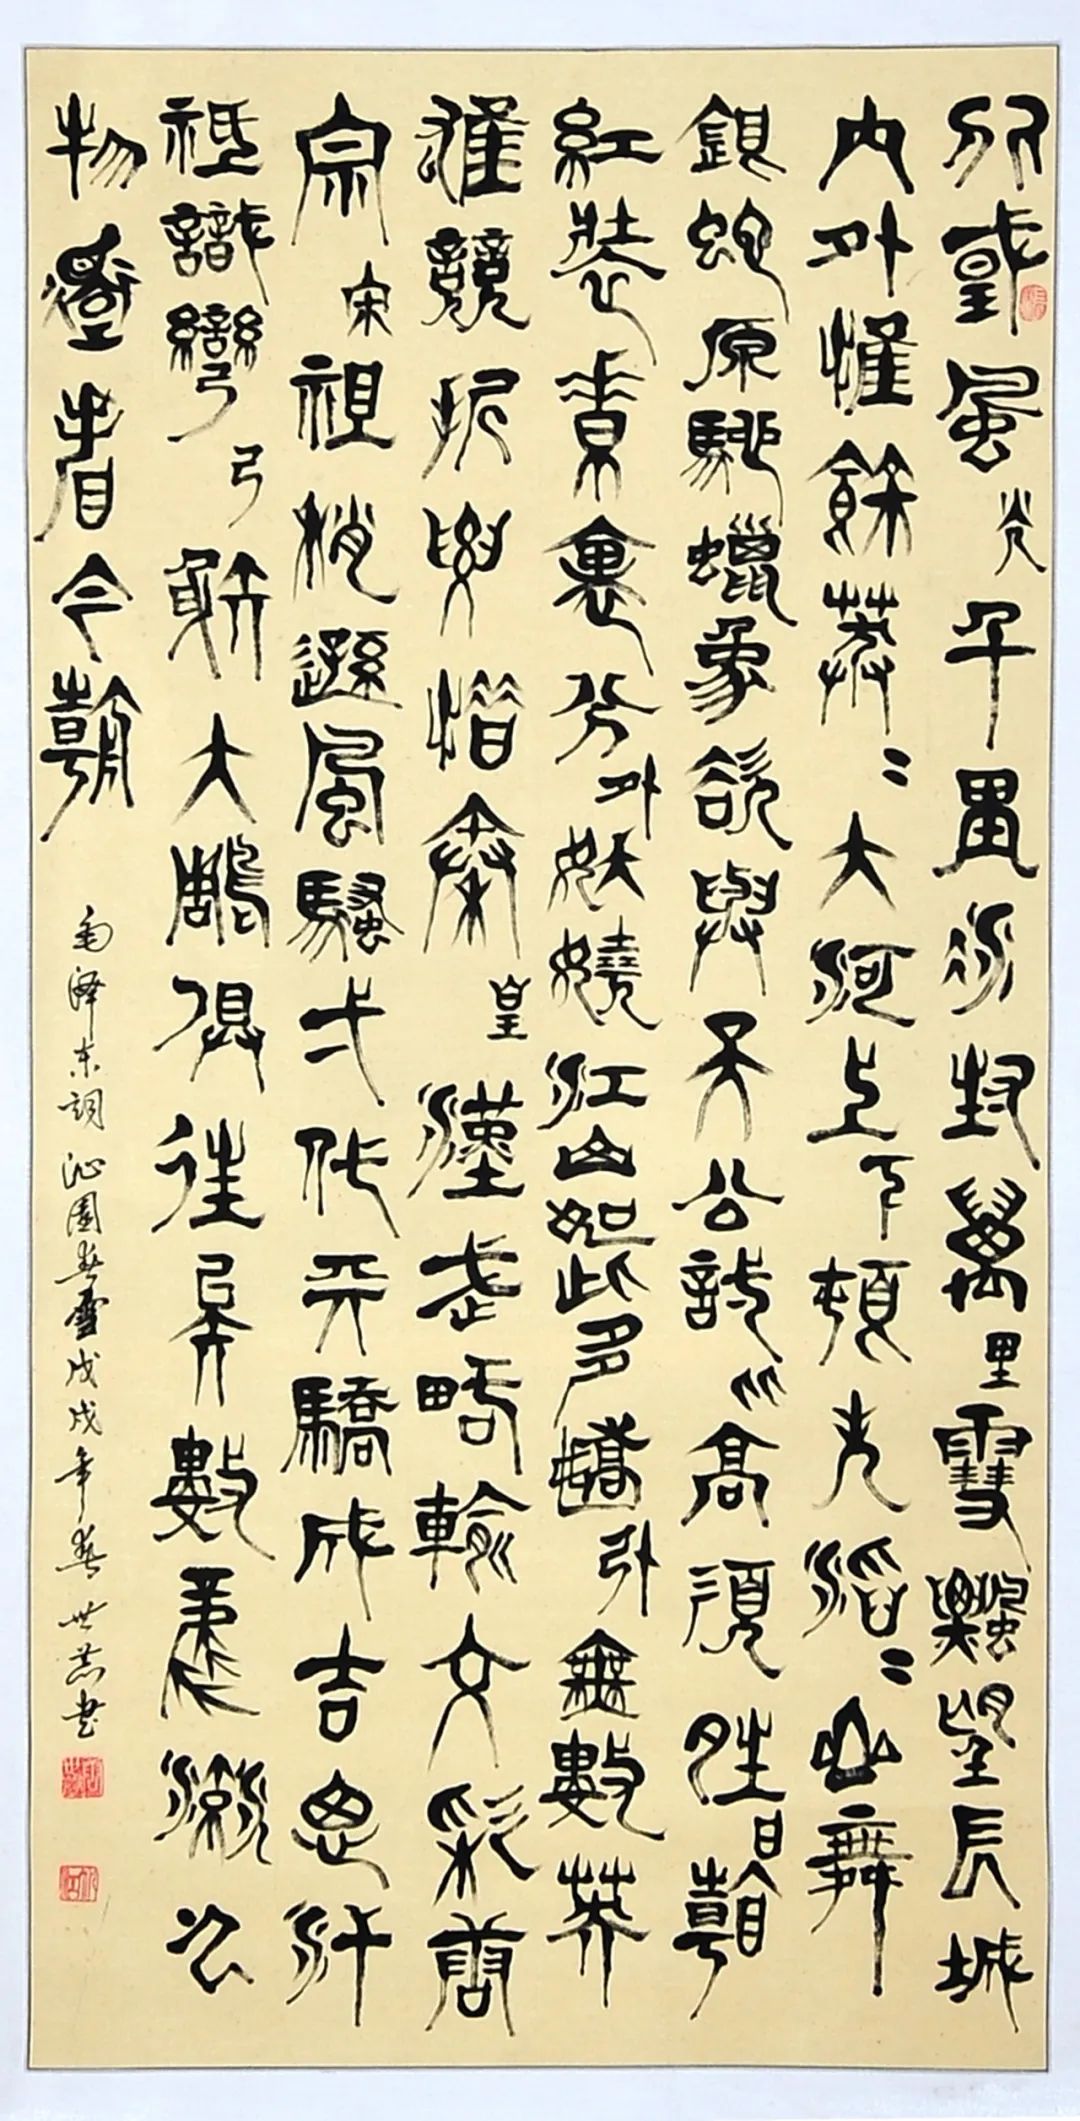 北國風光千里冰封萬里雪飄望長城
内外惟餘莽〻大河上下頓失滔〻山舞
銀蛇原馳蠟象欲與天公試比高須晴日看
紅裝素裹分外妖嬈江山如此多嬌引無數英
雄競折腰惜秦皇漢武略輸文彩唐
宗宋祖稍遜風騷一代天驕成吉思汗
祗識彎弓射大鵰俱往矣數風流人
物還看今朝
毛泽东詞沁園春雪戊戌年春世书